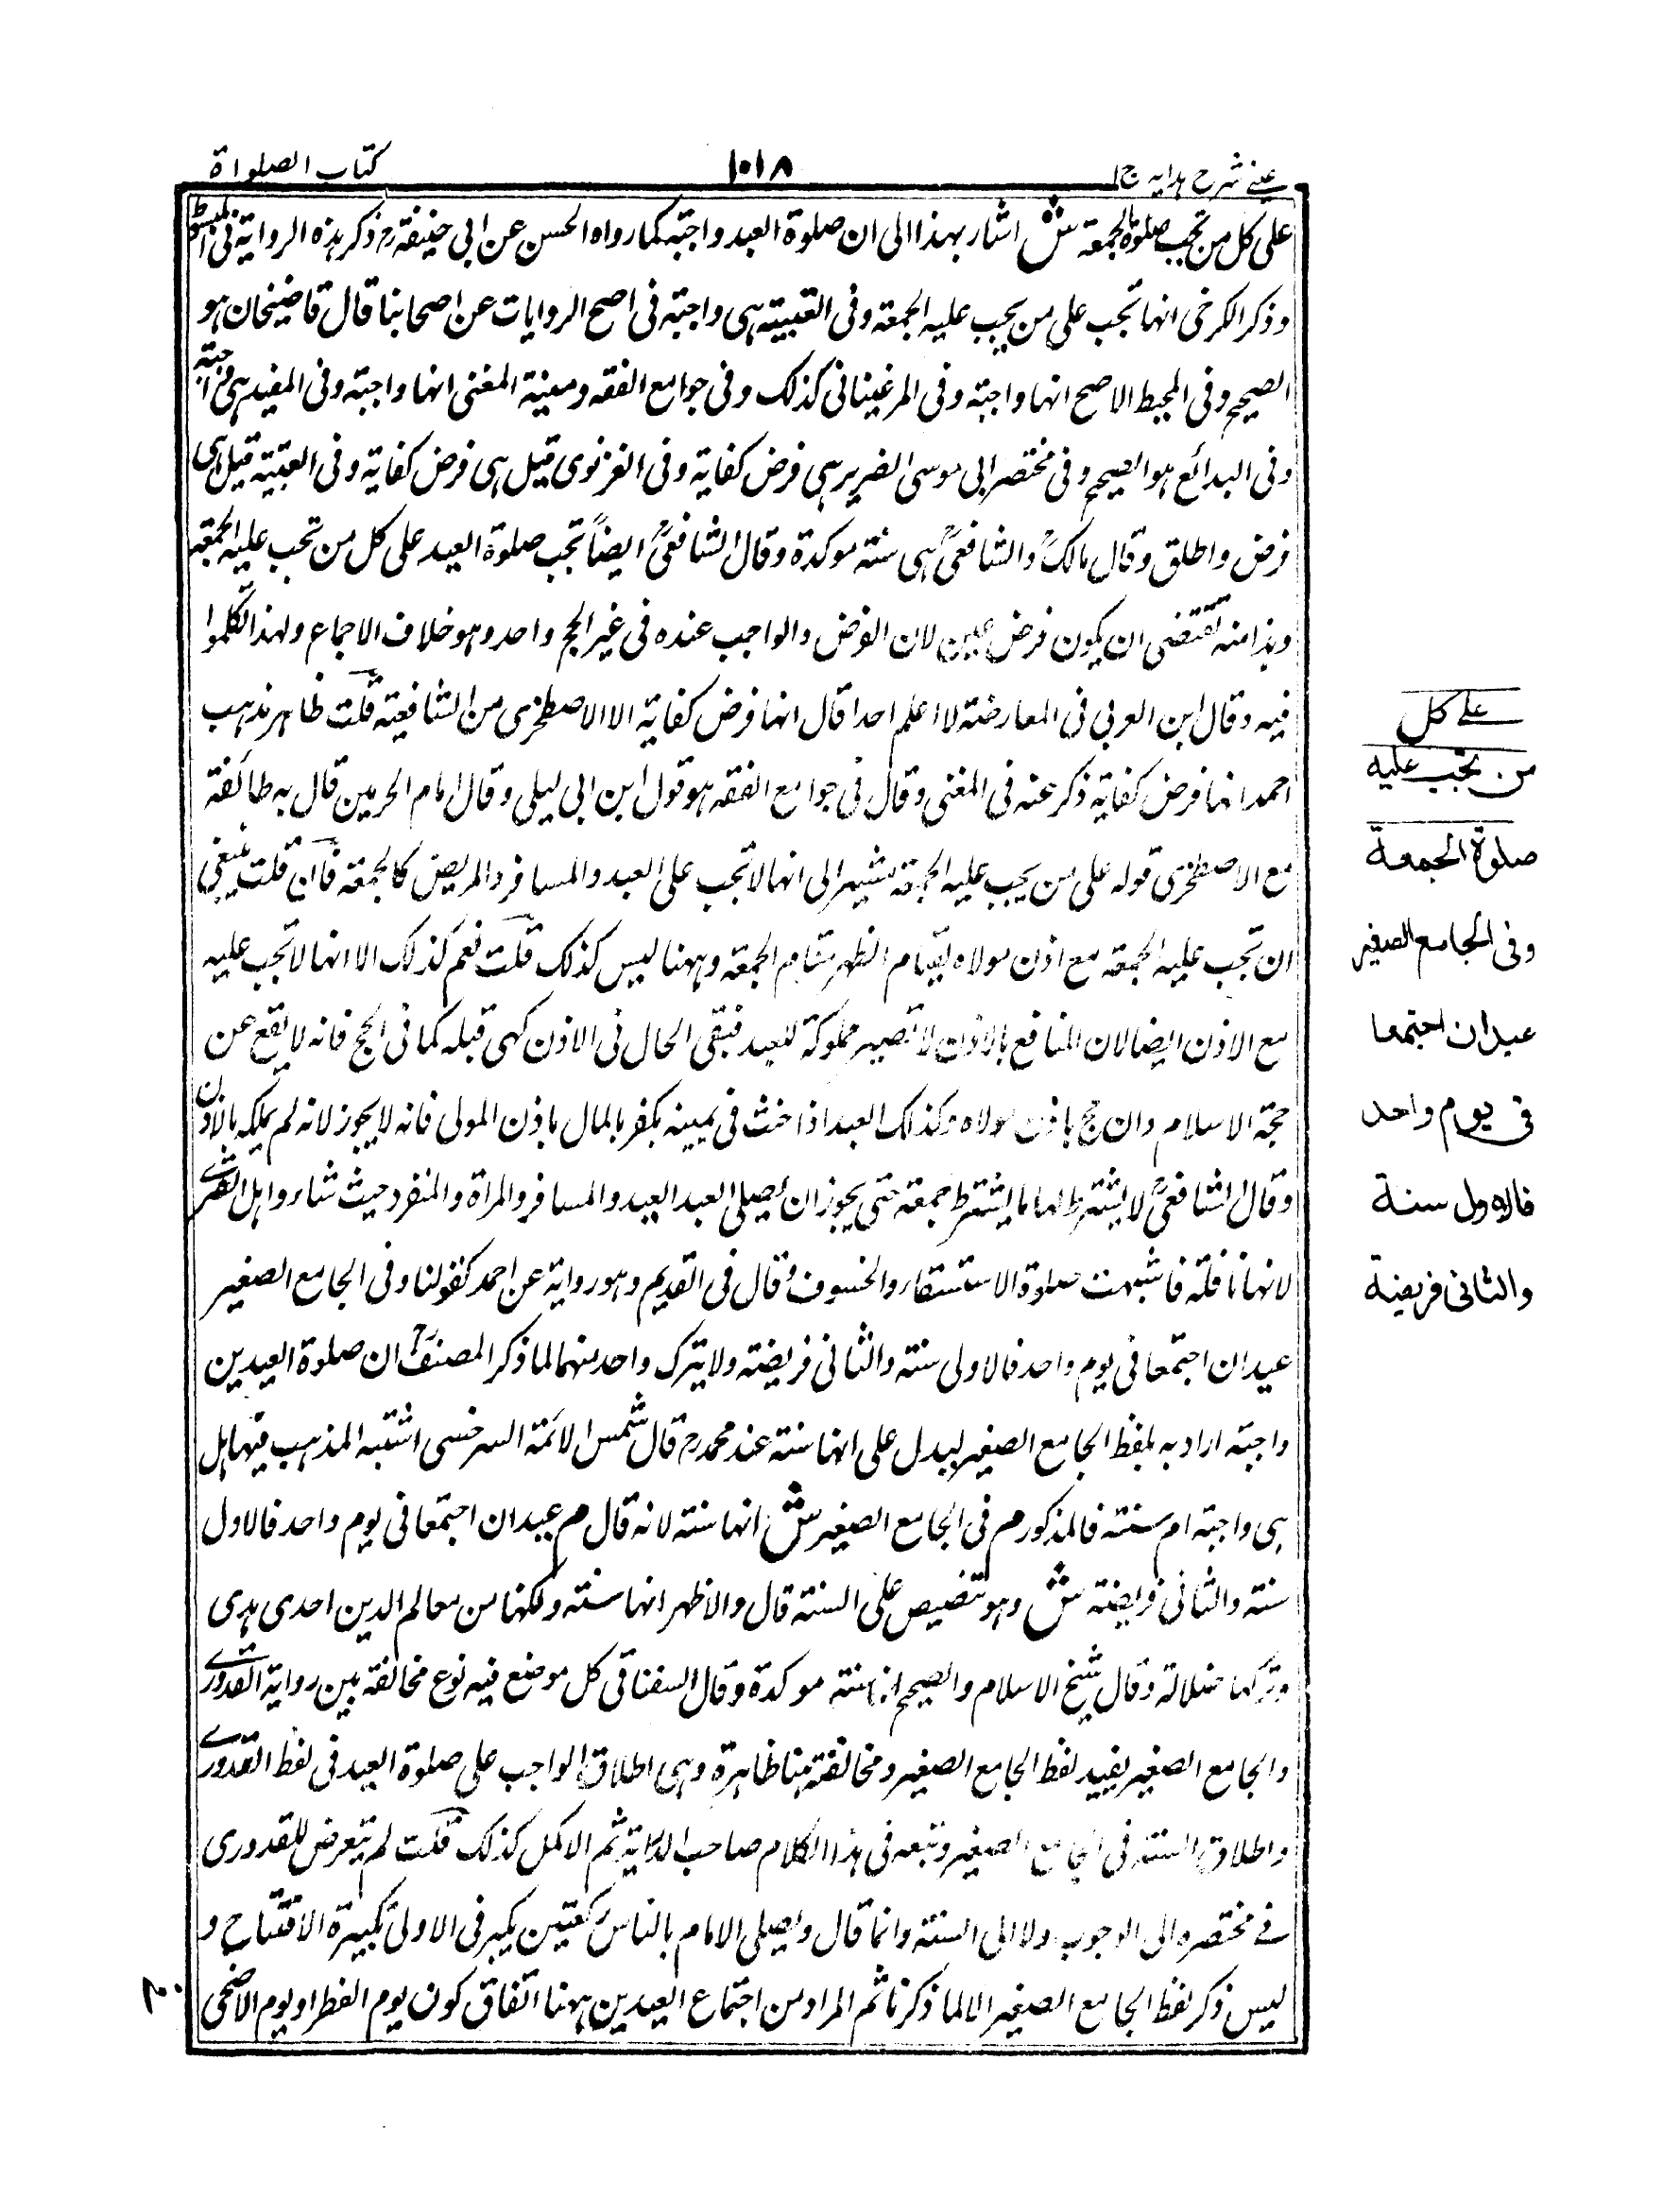 عينے شرح ہدايہ ج۱
۱۰۱۸
كتاب الصلواة
على كل من تجب صلوة الجمعة ش اشار بهذا الى ان صلوة العيد واجبة كما رواه الحسن عن ابى حنيفة رح ذكر هذه الرواية فى المبسوط
وذكر الكرخى انها تجب على من يجب عليه الجمعة وفى القنية هى واجبة فى اصح الروايات عن اصحابنا قال قاضيخان هو
الصحيح وفى المحيط الاصح انها واجبة وفى المرغينانى كذلك وفى جوامع الفقه ومنية المغنى انها واجبة وفى المفيد هى واجبة
وفى البدائع هو الصحيح وفى مختصر ابى موسى الضرير هى فرض كفاية وفى الغزنوى قيل هى فرض كفاية وفى القنية قيل هى
فرض واطلق وقال مالكؒ والشافعىؒ هى سنة موكدة وقال الشافعىؒ ايضاً تجب صلوة العيد على كل من تجب عليه الجمعة
وهذا منه تقتضى ان يكون فرض عين لان الفرض والواجب عنده فى غير الحج واحد وهو خلاف الاجماع ولهذا تكلموا
فيه وقال ابن العربى فى المعارضة لا اعلم احدا قال انها فرض كفاية الا الاصطخرى من الشافعية قلت ظاهر مذهب
احمد انها فرض كفاية ذكر عنه فى المغنى وقال فى جوامع الفقه هو قول ابن ابى ليلى وقال امام الحرمين قال به طائفة
مع الاصطخرى قوله على من يجب عليه الجمعة تشير الى انها لا تجب على العبد والمسافر والمريض كالجمعة فان قلت ينبغى
ان تجب عليه الجمعة مع اذن مولاه لقيام الظهر مقام الجمعة وههنا ليس كذلك قلت نعم كذلك الا انها لا تجب عليه
مع الاذن ايضا لان المنافع بالاذن لا تصير مملوكة للعبد فبقى الحال فى الاذن كهى قبله كما فى الحج فانه لا يقع عن
حجة الاسلام وان حج باذن مولاه وكذلك العبد اذا حنث فى يمينه بكفر بالمال باذن المولى فانه لا يجوز لانه لم يملكه بالاذن
وقال الشافعىؒ لا يشترط لها ما يشترط جمعة حتى يجوز ان يصلى العبد العيد والمسافر والمراة والمنفرد حيث شاء واهل القرے
لانها نافلة فاشبهت صلوة الاستسقاء والخسوف وقال فى القديم وهو رواية عن احمد كقولنا وفى الجامع الصغير
عيدان اجتمعا فى يوم واحد فالاولى سنة والثانى فريضة ولا يترك واحد منهما لما ذكر المصنفؒ ان صلوة العيدين
واجبة اراد به بلفظ الجامع الصغير ليدل على انها سنة عند محمد رح قال شمس الائمة السرخسى اشتبه المذهب فيها هل
هى واجبة ام سنة فالمذكور م فى الجامع الصغير ش انها سنة لانه قال م عيدان اجتمعا فى يوم واحد فالاول
سنة والثانى فريضة ش وهو تنصيص على السنة قال والاظهر انها سنة ولكنها من معالم الدين احدى هدى
وتركها ضلالة وقال شيخ الاسلام والصحيح انها سنة موكدة وقال السغناقى كل موضع فيه نوع مخالفة بين رواية القدورے
والجامع الصغير يفيد لفظ الجامع الصغير ومخالفة هنا ظاهرة وهى اطلاق الواجب على صلوة العيد فى لفظ القدورے
واطلاق السنة فى الجامع الصغير وتبعه فى هذا الكلام صاحب الدراية ثم الاكمل كذلك قلت لم يتعرض للقدورى
فے مختصره الى الوجوب ولا الى السنة وانما قال ويصلى الامام بالناس ركعتين يكبر فى الاولى تكبيرة الافتتاح و
ليس ذكر لفظ الجامع الصغير الا لما ذكرنا ثم المراد من اجتماع العيدين ههنا اتفاق كون يوم الفطر او يوم الاضحى
علے كل
من تجب عليه
صلوة الجمعة
وفى الجامع الصغير
عيدان اجتمعا
فى يوم واحد
فالاول سنة
والثانى فريضة